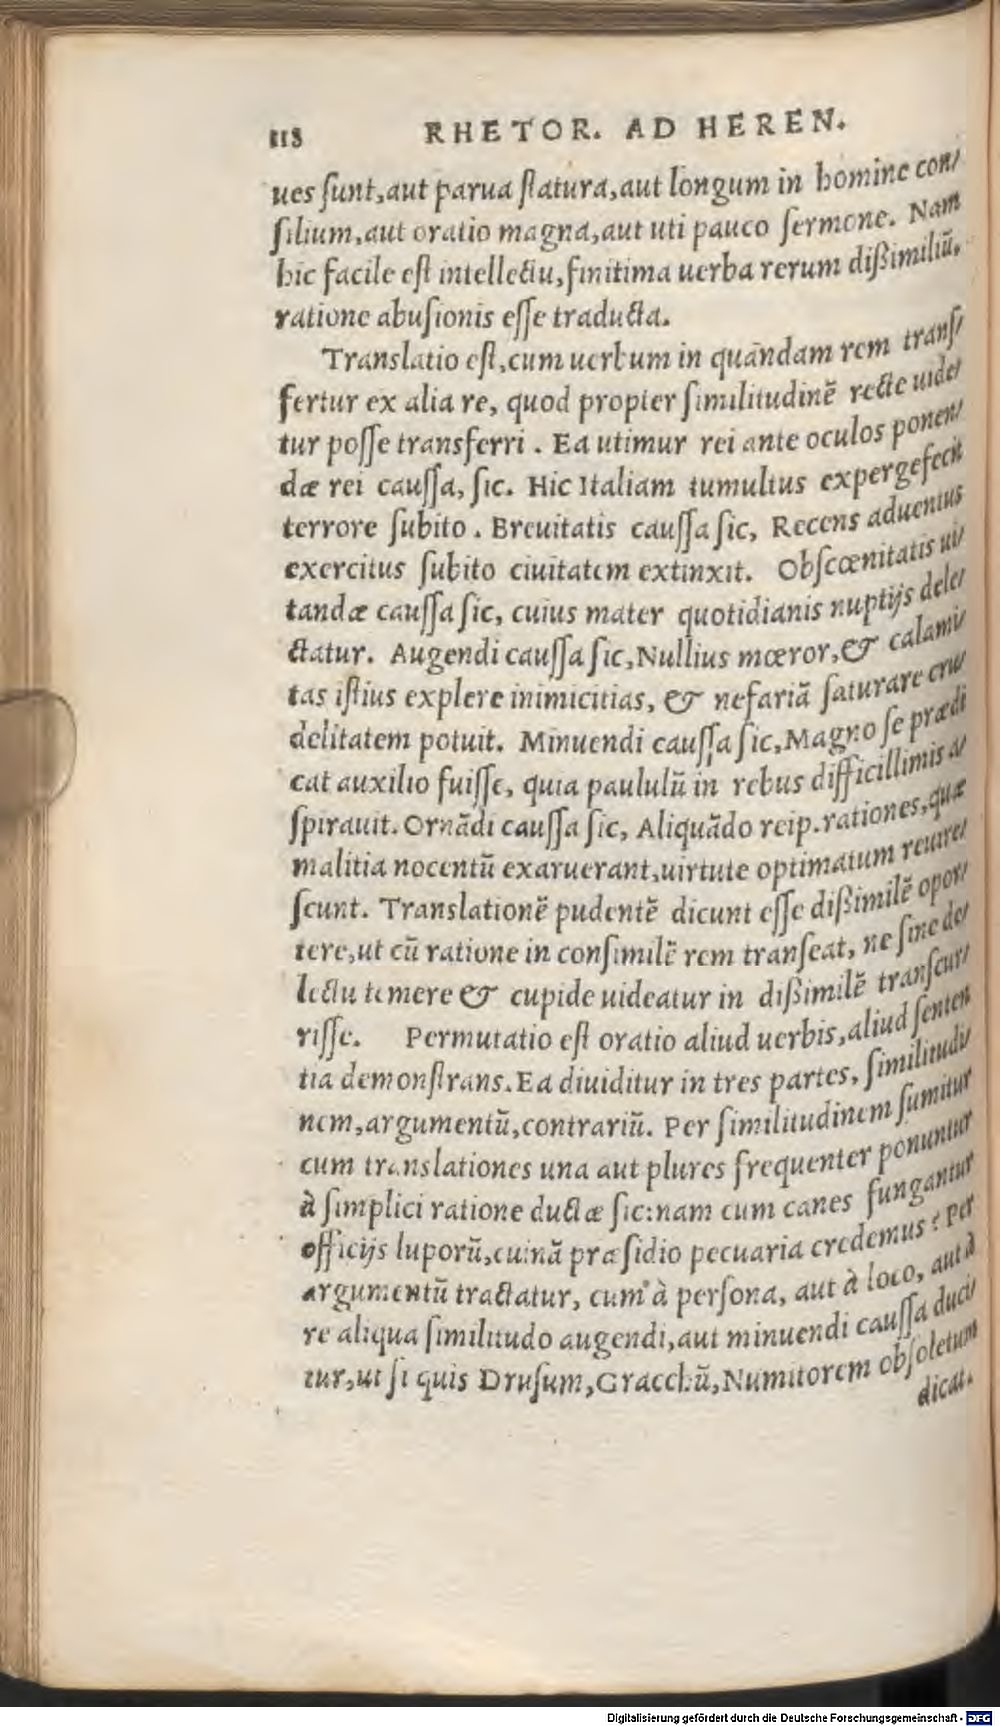 118 RHETOR. AD HEREN.
ues ſunt,aut parua ſtatura,aut longum in homine con/
ſilium,aut oratio magna,aut uti pauco ſermone. Nam
hic facile eſt intellectu,finitima uerba rerum diſſimiliū,
ratione abuſionis eſſe traducta.
Translatio eſt,cum uerbum in quandam rem tranſ/
fertur ex alia re, quod propter ſimilitudinē recte uide/
tur poſſe transferri . Ea utimur rei ante oculos ponen/
dæ rei cauſſa, ſic. Hic Italiam tumultus expergefecit
terrore ſubito . Breuitatis cauſſa ſic, Recens aduentus
exercitus ſubito ciuitatem extinxit. Obſcœnitatis ui/
tandæ cauſſa ſic, cuius mater quotidianis nuptijs dele/
ctatur. Augendi cauſſa ſic,Nullius mœror,& calami/
tas iſtius explere inimicitias, & nefariā ſaturare cru/
delitatem potuit. Minuendi cauſſa ſic,Magno ſe prædi
cat auxilio fuiſſe, quia paululū in rebus difficillimis a/
ſpirauit. Ornādi cauſſa ſic, Aliquādo reip.rationes,quæ
malitia nocentū exaruerant,uirtute optimatum reuire/
ſcunt. Translationē pudentē dicunt eſſe diſſimilē opor/
tere,ut cū ratione in conſimilē rem tranſeat, ne ſine de/
lectu temere & cupide uideatur in diſſimilē tranſcur/
riſſe. Permutatio eſt oratio aliud uerbis,aliud ſenten
tia demonſtrans.Ea diuiditur in tres partes, ſimilitudi/
nem,argumentū,contrariū. Per ſimilitudinem ſumitur
cum translationes una aut plures frequenter ponuntur
à ſimplici ratione ductæ ſic:nam cum canes fungantur
officijs luporū,cuinā præſidio pecuaria credemus? Per
argumentū tractatur, cum à perſona, aut à loco, aut à
re aliqua ſimilitudo augendi,aut minuendi cauſſa duci/
tur,ut ſi quis Druſum,Gracchū,Numitorem obſoletum
dicat.
Digitalisierung gefördert durch die Deutsche Forschungsgemeinschaft - DFG